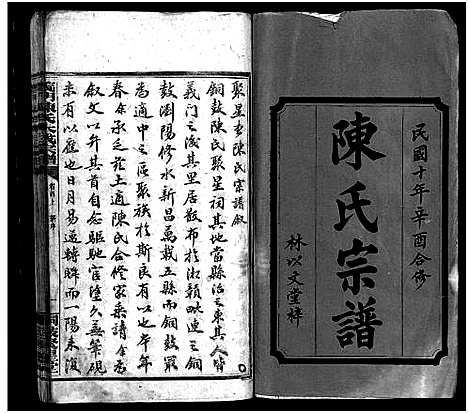 民國十年辛酉合修
陳氏宗譜
林以文堂梓
聚星堂陳氏宗譜叙
銅鼓陳氏聚星祠其地當縣治之東其人皆
義門之後其里居散布於湘贛毗連之銅
鼓瀏陽修水新昌萬載五縣而銅鼓最
為適中之區聚族於斯良有以也本年
春余承乏茲土適陳氏合修家譜余為
叙文以弁其首自念驅馳宦塗久無筆硯
未有以應也日月易邁轉瞬而一陽來復